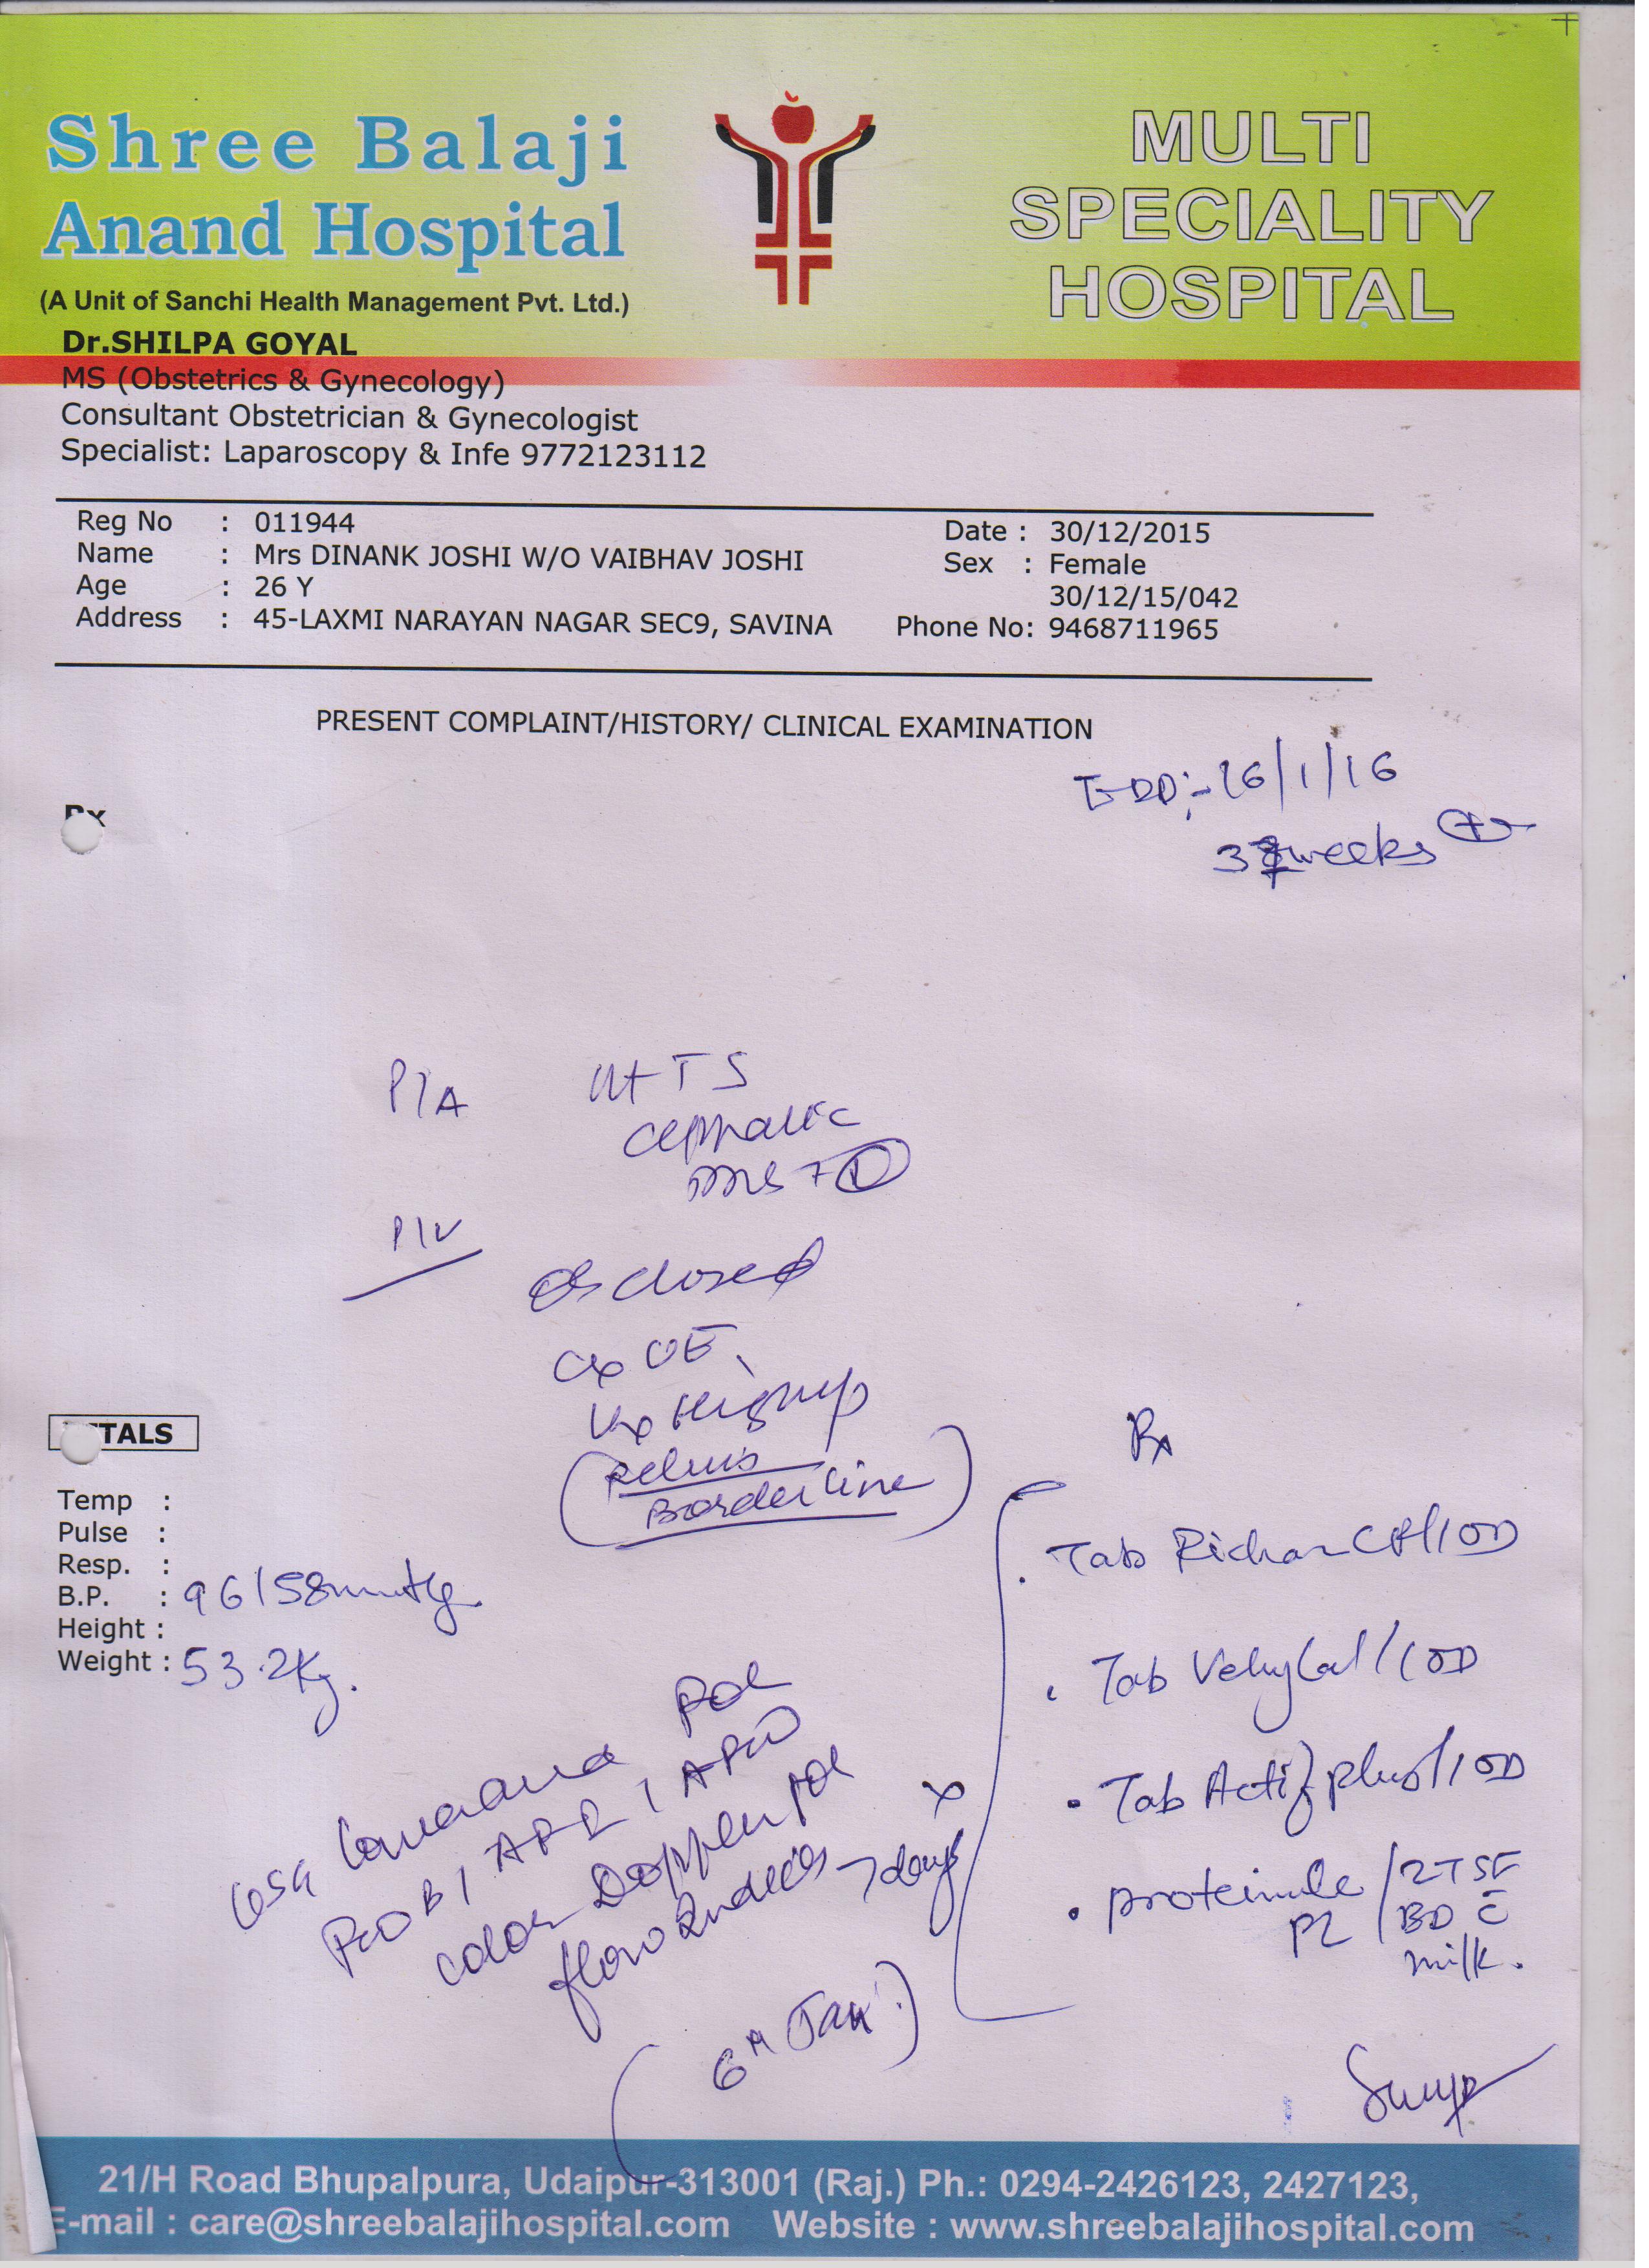 Shree Balaji
Anand Hospital
(A Unit of Sanchi Health Management Pvt. Ltd.)
MULTI
SPECIALITY
HOSPITAL
Dr.SHILPA GOYAL
MS (Obstetrics & Gynecology)
Consultant Obstetrician & Gynecologist
Specialist: Laparoscopy & Infe 9772123112
Reg No : 011944
Name : Mrs DINANK JOSHI W/O VAIBHAV JOSHI
Age : 26 Y
Address : 45-LAXMI NARAYAN NAGAR SEC9, SAVINA
Date : 30/12/2015
Sex : Female
30/12/15/042
Phone No: 9468711965
PRESENT COMPLAINT/HISTORY/ CLINICAL EXAMINATION
EDD:- 16/1/16
weeks
Rx
P/A ut TS
cephalic
P/V
os closed
Cx UE
Vx High up
(Pelvis
Borderline)
TALS
Temp :
Pulse :
Resp. :
B.P. : 96/58mmHg
Height :
Weight : 53.2Kg.
Rx
Tab 1OD
Tab 1OD
Tab plus 1OD
proteinule 2TSF
PL BD c̄
milk.
for
color Doppler for
flow Indices 7 days
(6th Jan)
21/H Road Bhupalpura, Udaipur-313001 (Raj.) Ph.: 0294-2426123, 2427123,
E-mail : care@shreebalajihospital.com Website : www.shreebalajihospital.com